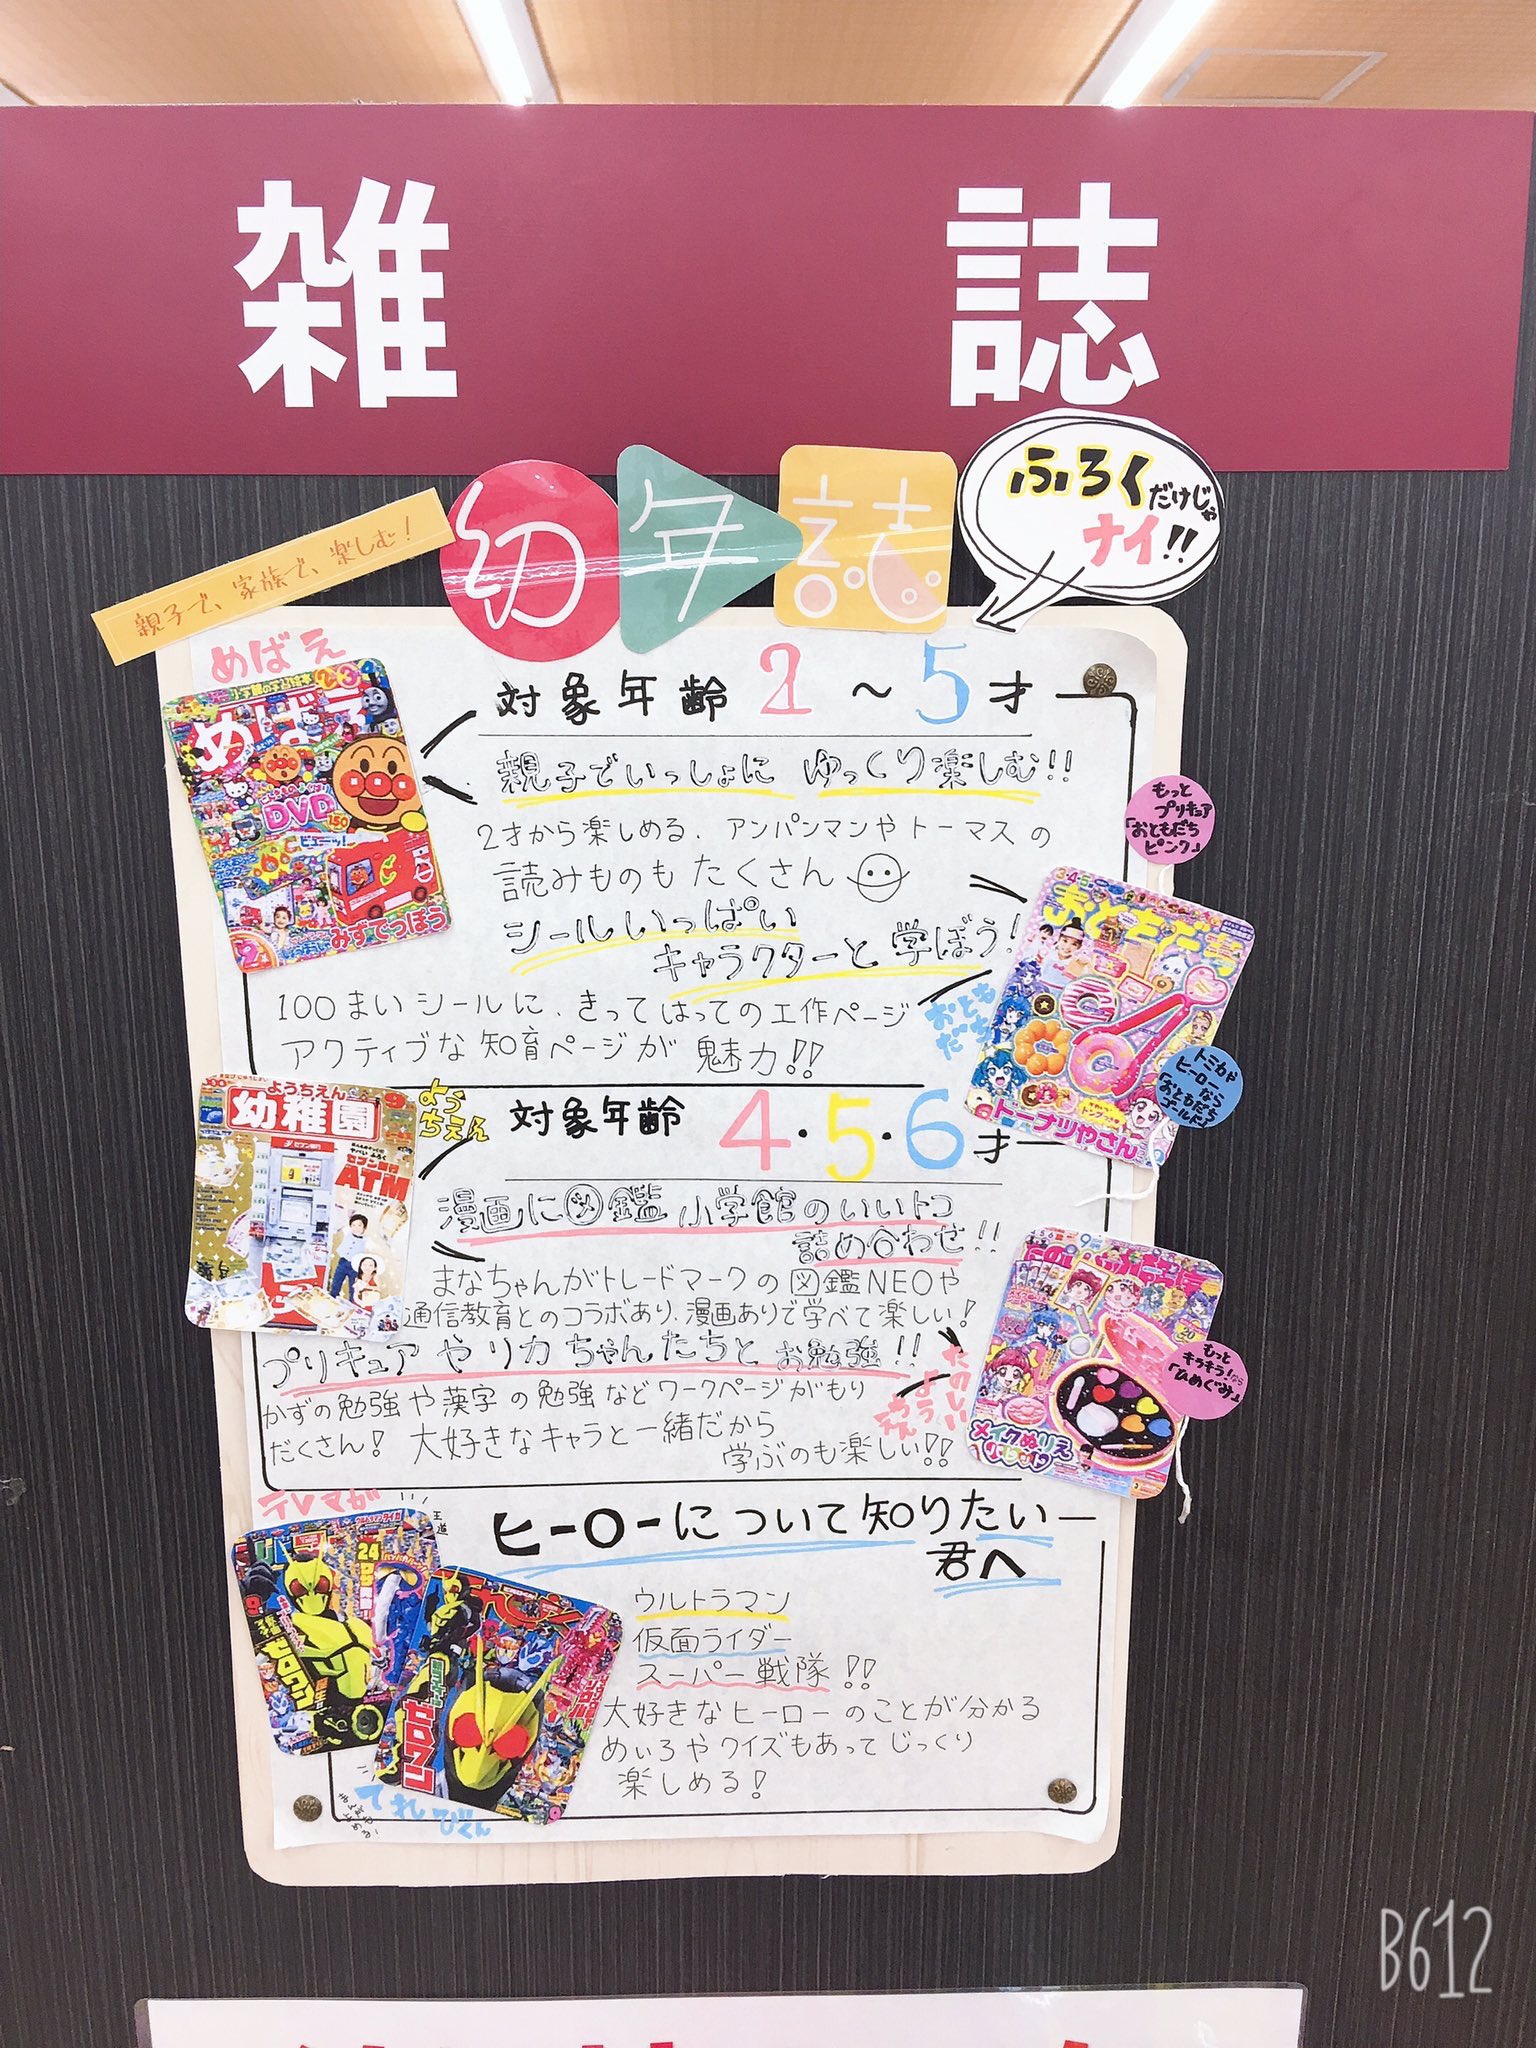 雑誌
幼年誌
ふろくだけじゃ
ナイ!!
親子で、家族で、楽しむ!
めばえ
対象年齢 2～5才
親子でいっしょに ゆっくり楽しむ!!
2才から楽しめる、アンパンマンやトーマスの
読みものもたくさん
シールいっぱい
キャラクターと学ぼう!
100まいシールに、きってはっての工作ページ
アクティブな知育ページが魅力!!
めばえ
DVD
みずでっぽう
もっと
プリキュア
「おともだち
ピンク」
おともだち
おともだち
ドーナツやさん
トミカや
ヒーローなら
「おともだち
ゴールド」
ようちえん
対象年齢 4・5・6才
漫画に図鑑 小学館のいいトコ
詰め合わせ!!
まなちゃんがトレードマークの図鑑NEOや
通信教育とのコラボあり、漫画ありで学べて楽しい!
プリキュアやリカちゃんたちとお勉強!!
かずの勉強や漢字の勉強などワークページがもり
だくさん! 大好きなキャラと一緒だから
学ぶのも楽しい!!
ようちえん
幼稚園
セブン銀行
ATM
たのしい
ようちえん
メイクぬりえ
もっと
キラキラ!なら
「ひめぐみ」
テレマガ
王道
ヒーローについて知りたい
君へ
ウルトラマン
仮面ライダー
スーパー戦隊!!
大好きなヒーローのことが分かる
めいろやクイズもあってじっくり
楽しめる!
24
ゼロワン
ゼロワン
てれびくん
B612